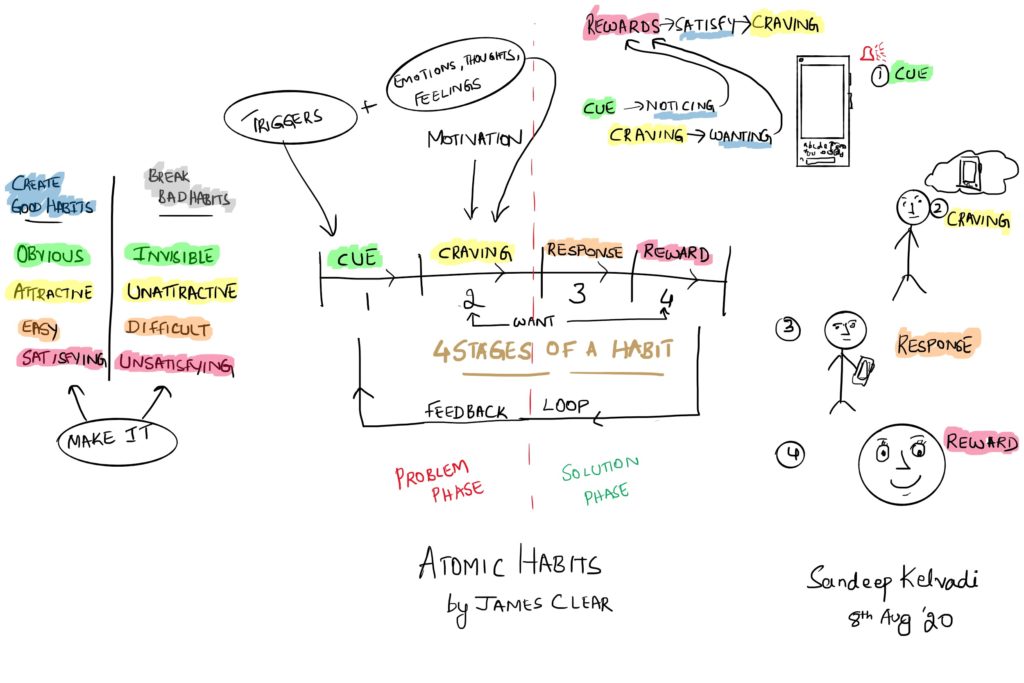 REWARDS→SATISFY→CRAVING
CUE →NOTICING
CRAVING→WANTING
1 CUE
2 CRAVING
3 RESPONSE
4 REWARD
TRIGGERS
+
EMOTIONS, THOUGHTS,
FEELINGS
MOTIVATION
CREATE
GOOD HABITS
BREAK
BAD HABITS
OBVIOUS INVISIBLE
ATTRACTIVE UNATTRACTIVE
EASY DIFFICULT
SATISFYING UNSATISFYING
MAKE IT
CUE CRAVING RESPONSE REWARD
1 2 3 4
WANT
4 STAGES OF A HABIT
FEEDBACK LOOP
PROBLEM
PHASE
SOLUTION
PHASE
ATOMIC HABITS
by JAMES CLEAR
Sandeep Kelvadi
8th Aug '20